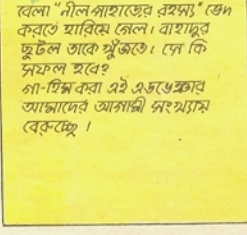 বেলা "নীল পাহাড়ের রহস্য" ভেদ
করতে হারিয়ে গেল। বাহাদুর
ছুটল তাকে খুঁজতে। সে কি
সফল হবে?
গা-হিম করা এই এডভেঞ্চার
আমাদের আগামী সংখ্যায়
বেরুচ্ছে।